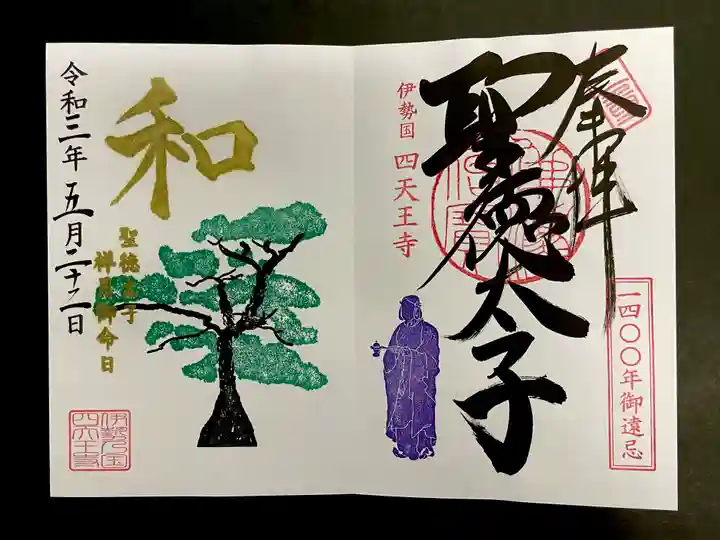 奉拝
聖徳太子
伊勢国 四天王寺
一四〇〇年御遠忌
和
聖徳太子
祥月御命日
令和三年 五月二十二日
伊勢乃国
四天王寺